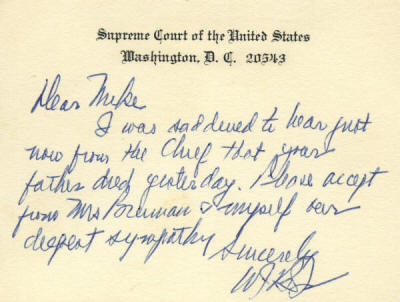 Supreme Court of the United States
Washington, D. C. 20543
Dear Mike
I was saddened to hear just
now from the Chief that your
father died yesterday. Please accept
from Mrs Brennan & myself our
deepest sympathy
Sincerely